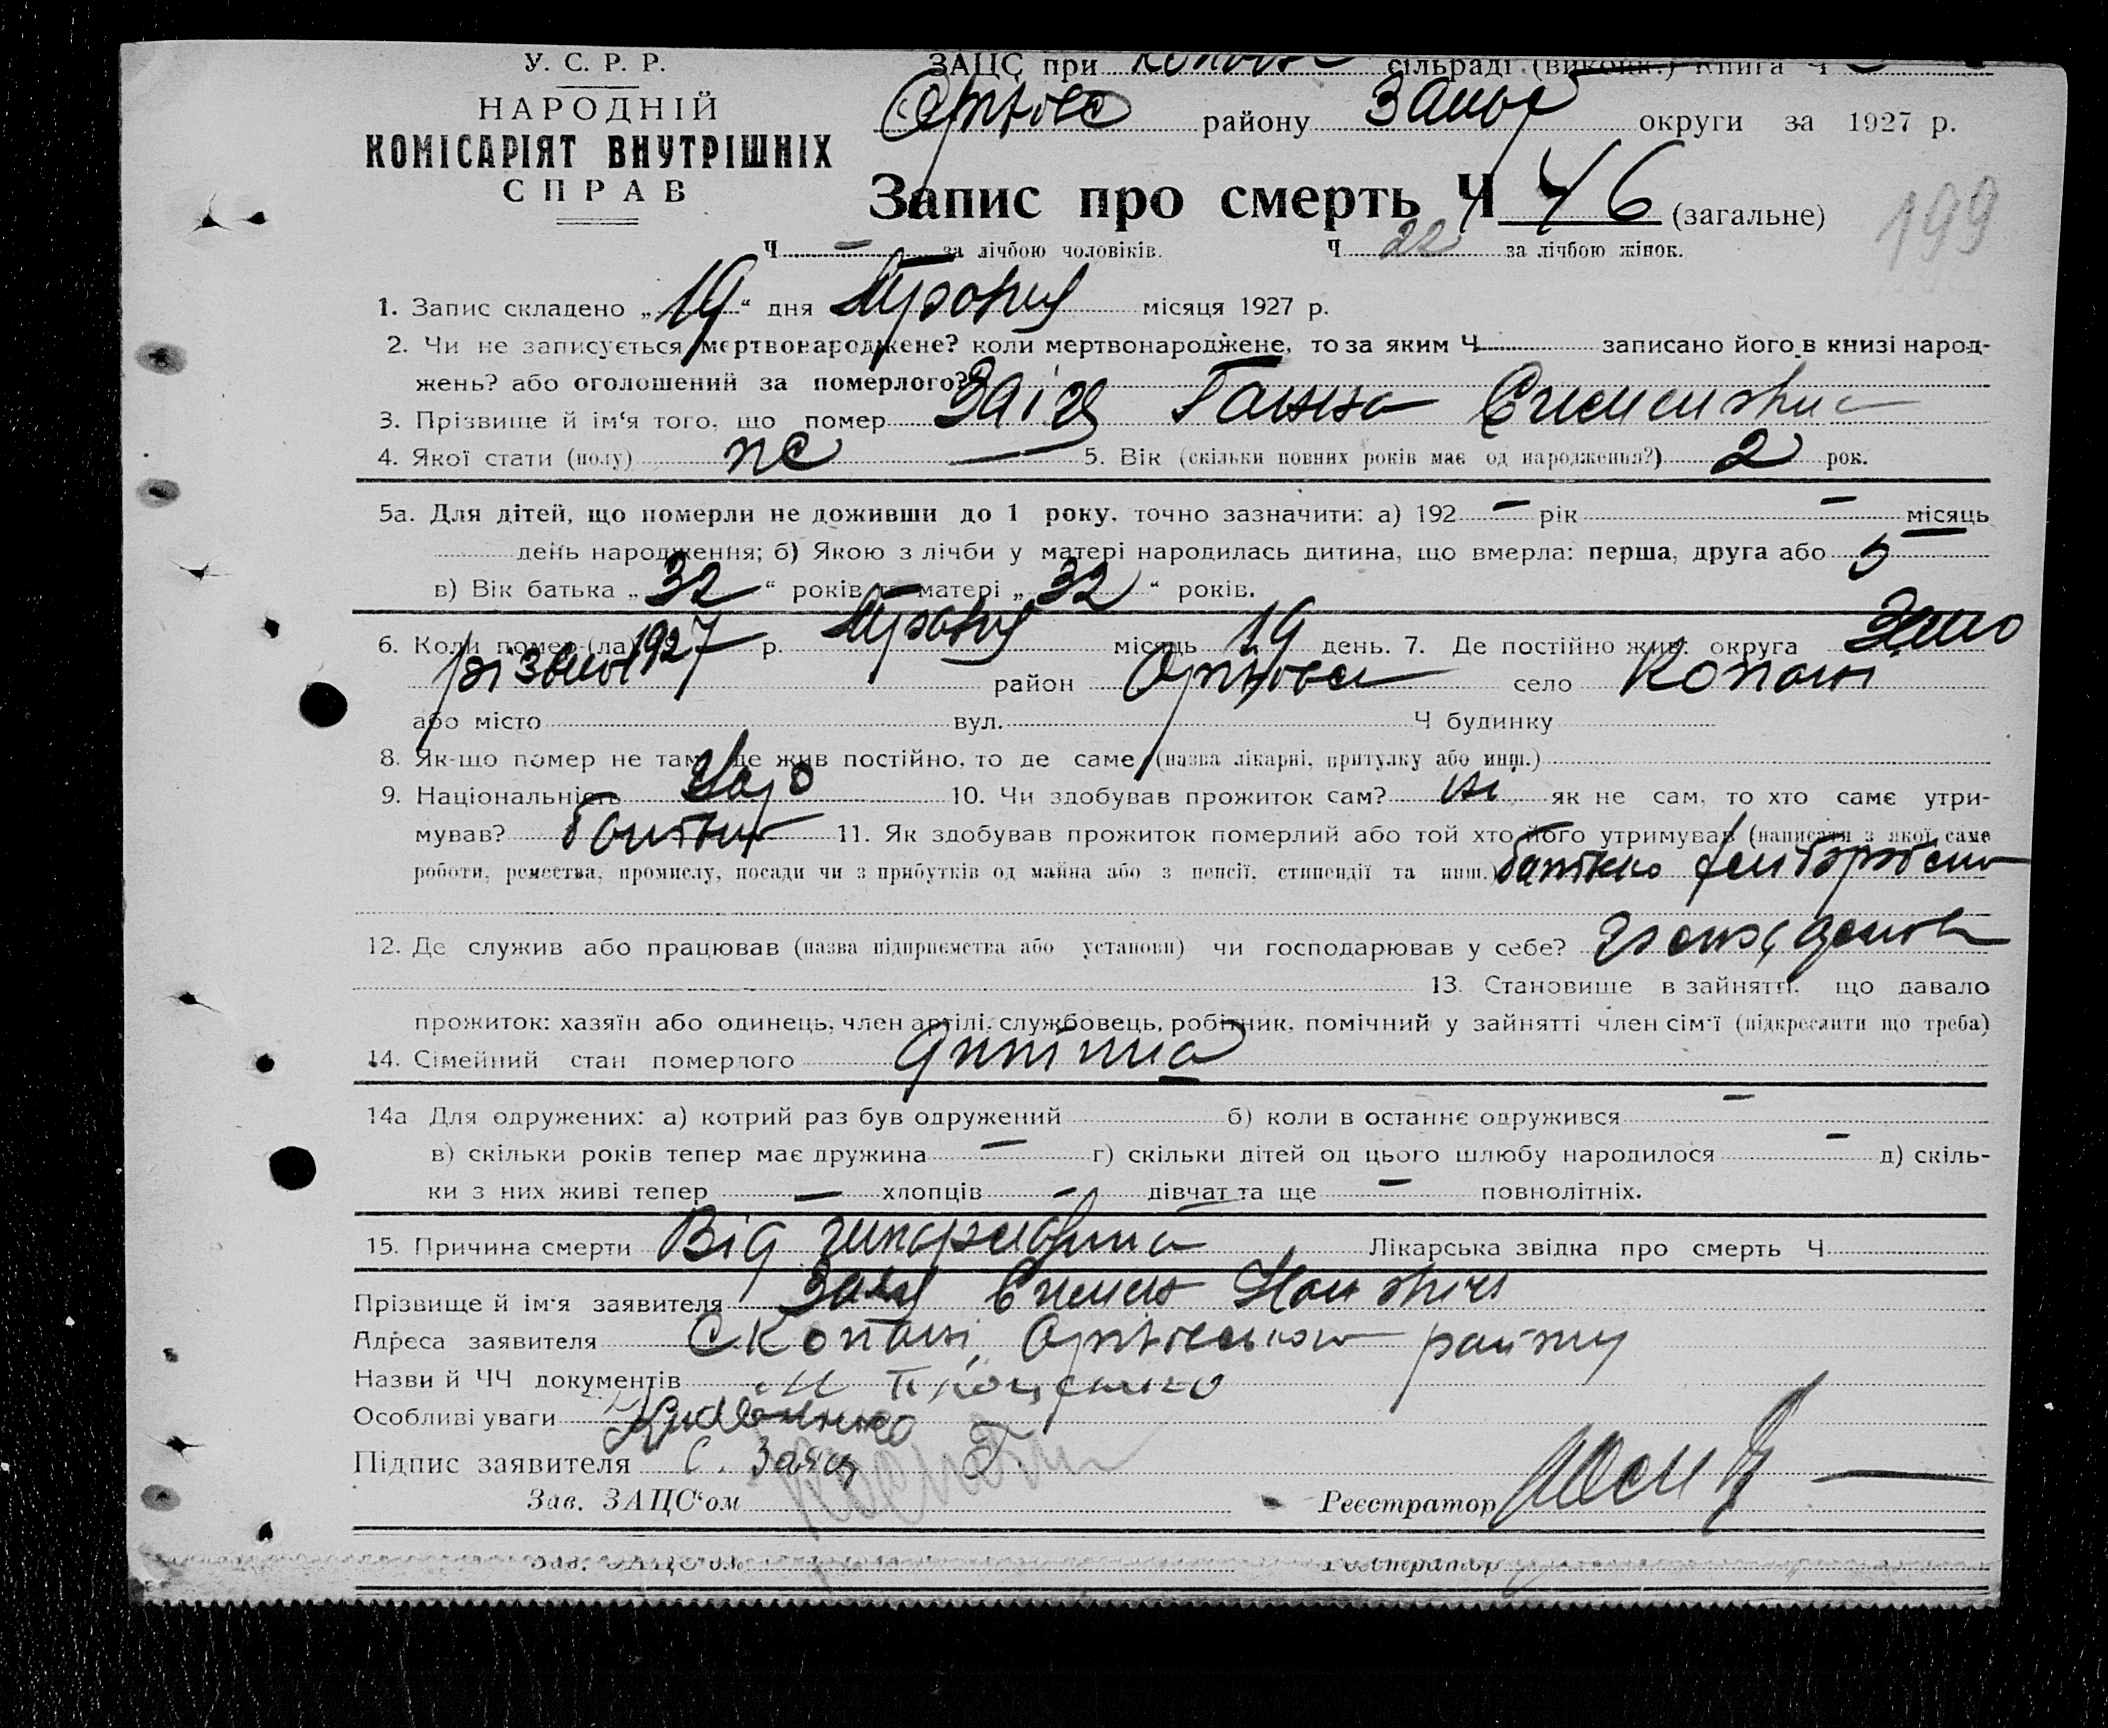 У. С. Р. Р.
НАРОДНІЙ
КОМІСАРІЯТ ВНУТРІШНІХ
СПРАВ
ЗАЦС при сільраді (виконк.) Книга Ч
району округи за 1927 р.
Запис про смерть Ч 46 (загальне)
199
Ч — за лічбою чоловіків. Ч 22 за лічбою жінок.
1. Запис складено „19“ дня Травня місяця 1927 р.
2. Чи не записується мертвонароджене? коли мертвонароджене, то за яким Ч записано його в книзі народ-
жень? або оголошений за померлого?
3. Прізвище й ім‘я того, що помер Заіць Ганна
4. Якої стати (полу) 5. Вік (скільки повних років має од народження?) 2 рок.
5а. Для дітей, що померли не доживши до 1 року, точно зазначити: а) 192 — рік — місяць
день народження; б) Якою з лічби у матері народилась дитина, що вмерла: перша, друга або 5
в) Вік батька „32“ років та матері „32“ років.
6. Коли помер (ла) 1927 р. Травня місяць 19 день. 7. Де постійно жив: округа Запо
різька район село Копані
або місто вул. Ч будинку
8. Як-що помер не там, де жив постійно, то де саме (назва лікарні, притулку або инш.)
9. Національність Укр 10. Чи здобував прожиток сам? ні як не сам, то хто саме утри-
мував? батько 11. Як здобував прожиток померлий або той хто його утримував (написати з якої саме
роботи, ремества, промислу, посади чи з прибутків од майна або з пенсії, стипендії та инш.) батько
12. Де служив або працював (назва підприємства або установи) чи господарював у себе?
13. Становище в зайнятті, що давало
прожиток: хазяїн або одинець, член артілі, службовець, робітник, помічний у зайнятті член сім‘ї (підкреслити що треба)
14. Сімейний стан померлого дитина
14а Для одружених: а) котрий раз був одружений б) коли в останнє одружився —
в) скільки років тепер має дружина — г) скільки дітей од цього шлюбу народилося — д) скіль-
ки з них живі тепер — хлопців — дівчат та ще — повнолітніх.
15. Причина смерти Від шкарлатина Лікарська звідка про смерть Ч
Прізвище й ім‘я заявителя Заяц
Адреса заявителя с Копані, району
Назви й ЧЧ документів
Особливі уваги
Підпис заявителя С. Заяц
Зав. ЗАЦС‘ом Реєстратор
Зав. ЗАЦС‘ом Реєстратор